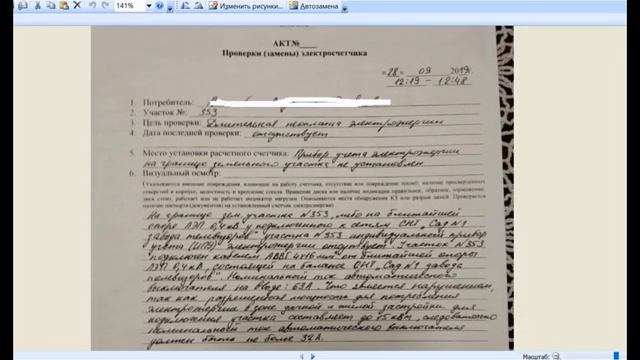 141%
Изменить рисунки...
Автозамена
АКТ№____
Проверки (замены) электросчетчика
«28» 09 2019г.
12:19 – 12:48
1. Потребитель:
2. Участок №: 353
3. Цель проверки: Длительная неоплата электроэнергии
4. Дата последней проверки: отсутствует
5. Место установки расчетного счетчика: Прибор учета электроэнергии
на границе земельного участка не установлен
6. Визуальный осмотр:
(Указываются внешние повреждения, влияющие на работу счетчика, отсутствие или повреждение пломб, наличие просверленных
отверстий в корпусе, целостность и крепление стекла. Вращение диска или наличие индикации правильное, обратное, торможение,
знак стоит, работает или не работает индикатор нагрузки. Описываются места обнаружения КЗ или разрыв цепей. Проверяется
наличие паспорта (документов) на установленный счетчик электроэнергии)
На границе зем. участка №353, либо на ближайшей
опоре ЛЭП 0,4кВ у подключённого к сетям СНТ „Сад №1
завода телевизоров" участка №353 индивидуальный прибор
учёта (ИПУ) электроэнергии отсутствует. Участок №353
подключен кабелем АВВГ 4х16 мм² от ближайшей опоры
ЛЭП 0,4кВ, состоящей на балансе СНТ „Сад №1 завода
телевизоров". Номинальный ток автоматического
выключателя на вводе: 63А. Что является нарушением,
так как разрешённая мощность для потребления
электроэнергии в зоне дачной и жилой застройки для
подключения участка составляет до 15 кВт, следовательно
номинальный ток автоматического выключателя
должен быть не более 32А.
Масштаб: